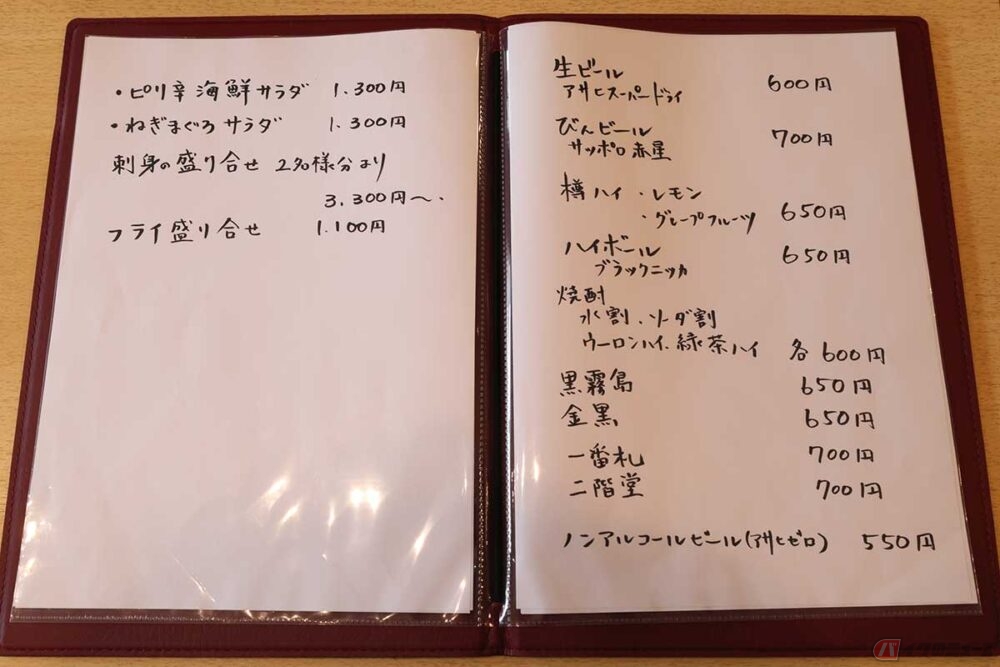 ・ピリ辛海鮮サラダ 1.300円
・ねぎまぐろサラダ 1.300円
刺身の盛り合せ 2名様分より
3.300円〜.
フライ盛り合せ 1.100円
生ビール
アサヒスーパードライ 600円
びんビール
サッポロ赤星 700円
樽ハイ・レモン
・グレープフルーツ 650円
ハイボール
ブラックニッカ 650円
焼酎
水割、ソーダ割
ウーロンハイ、緑茶ハイ 各600円
黒霧島 650円
金黒 650円
一番札 700円
二階堂 700円
ノンアルコールビール(アサヒゼロ) 550円